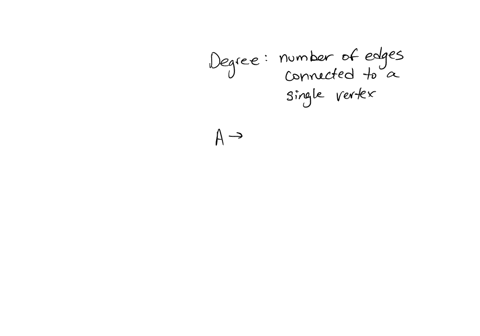 Degree: number of edges
connected to a
single vertex
A →